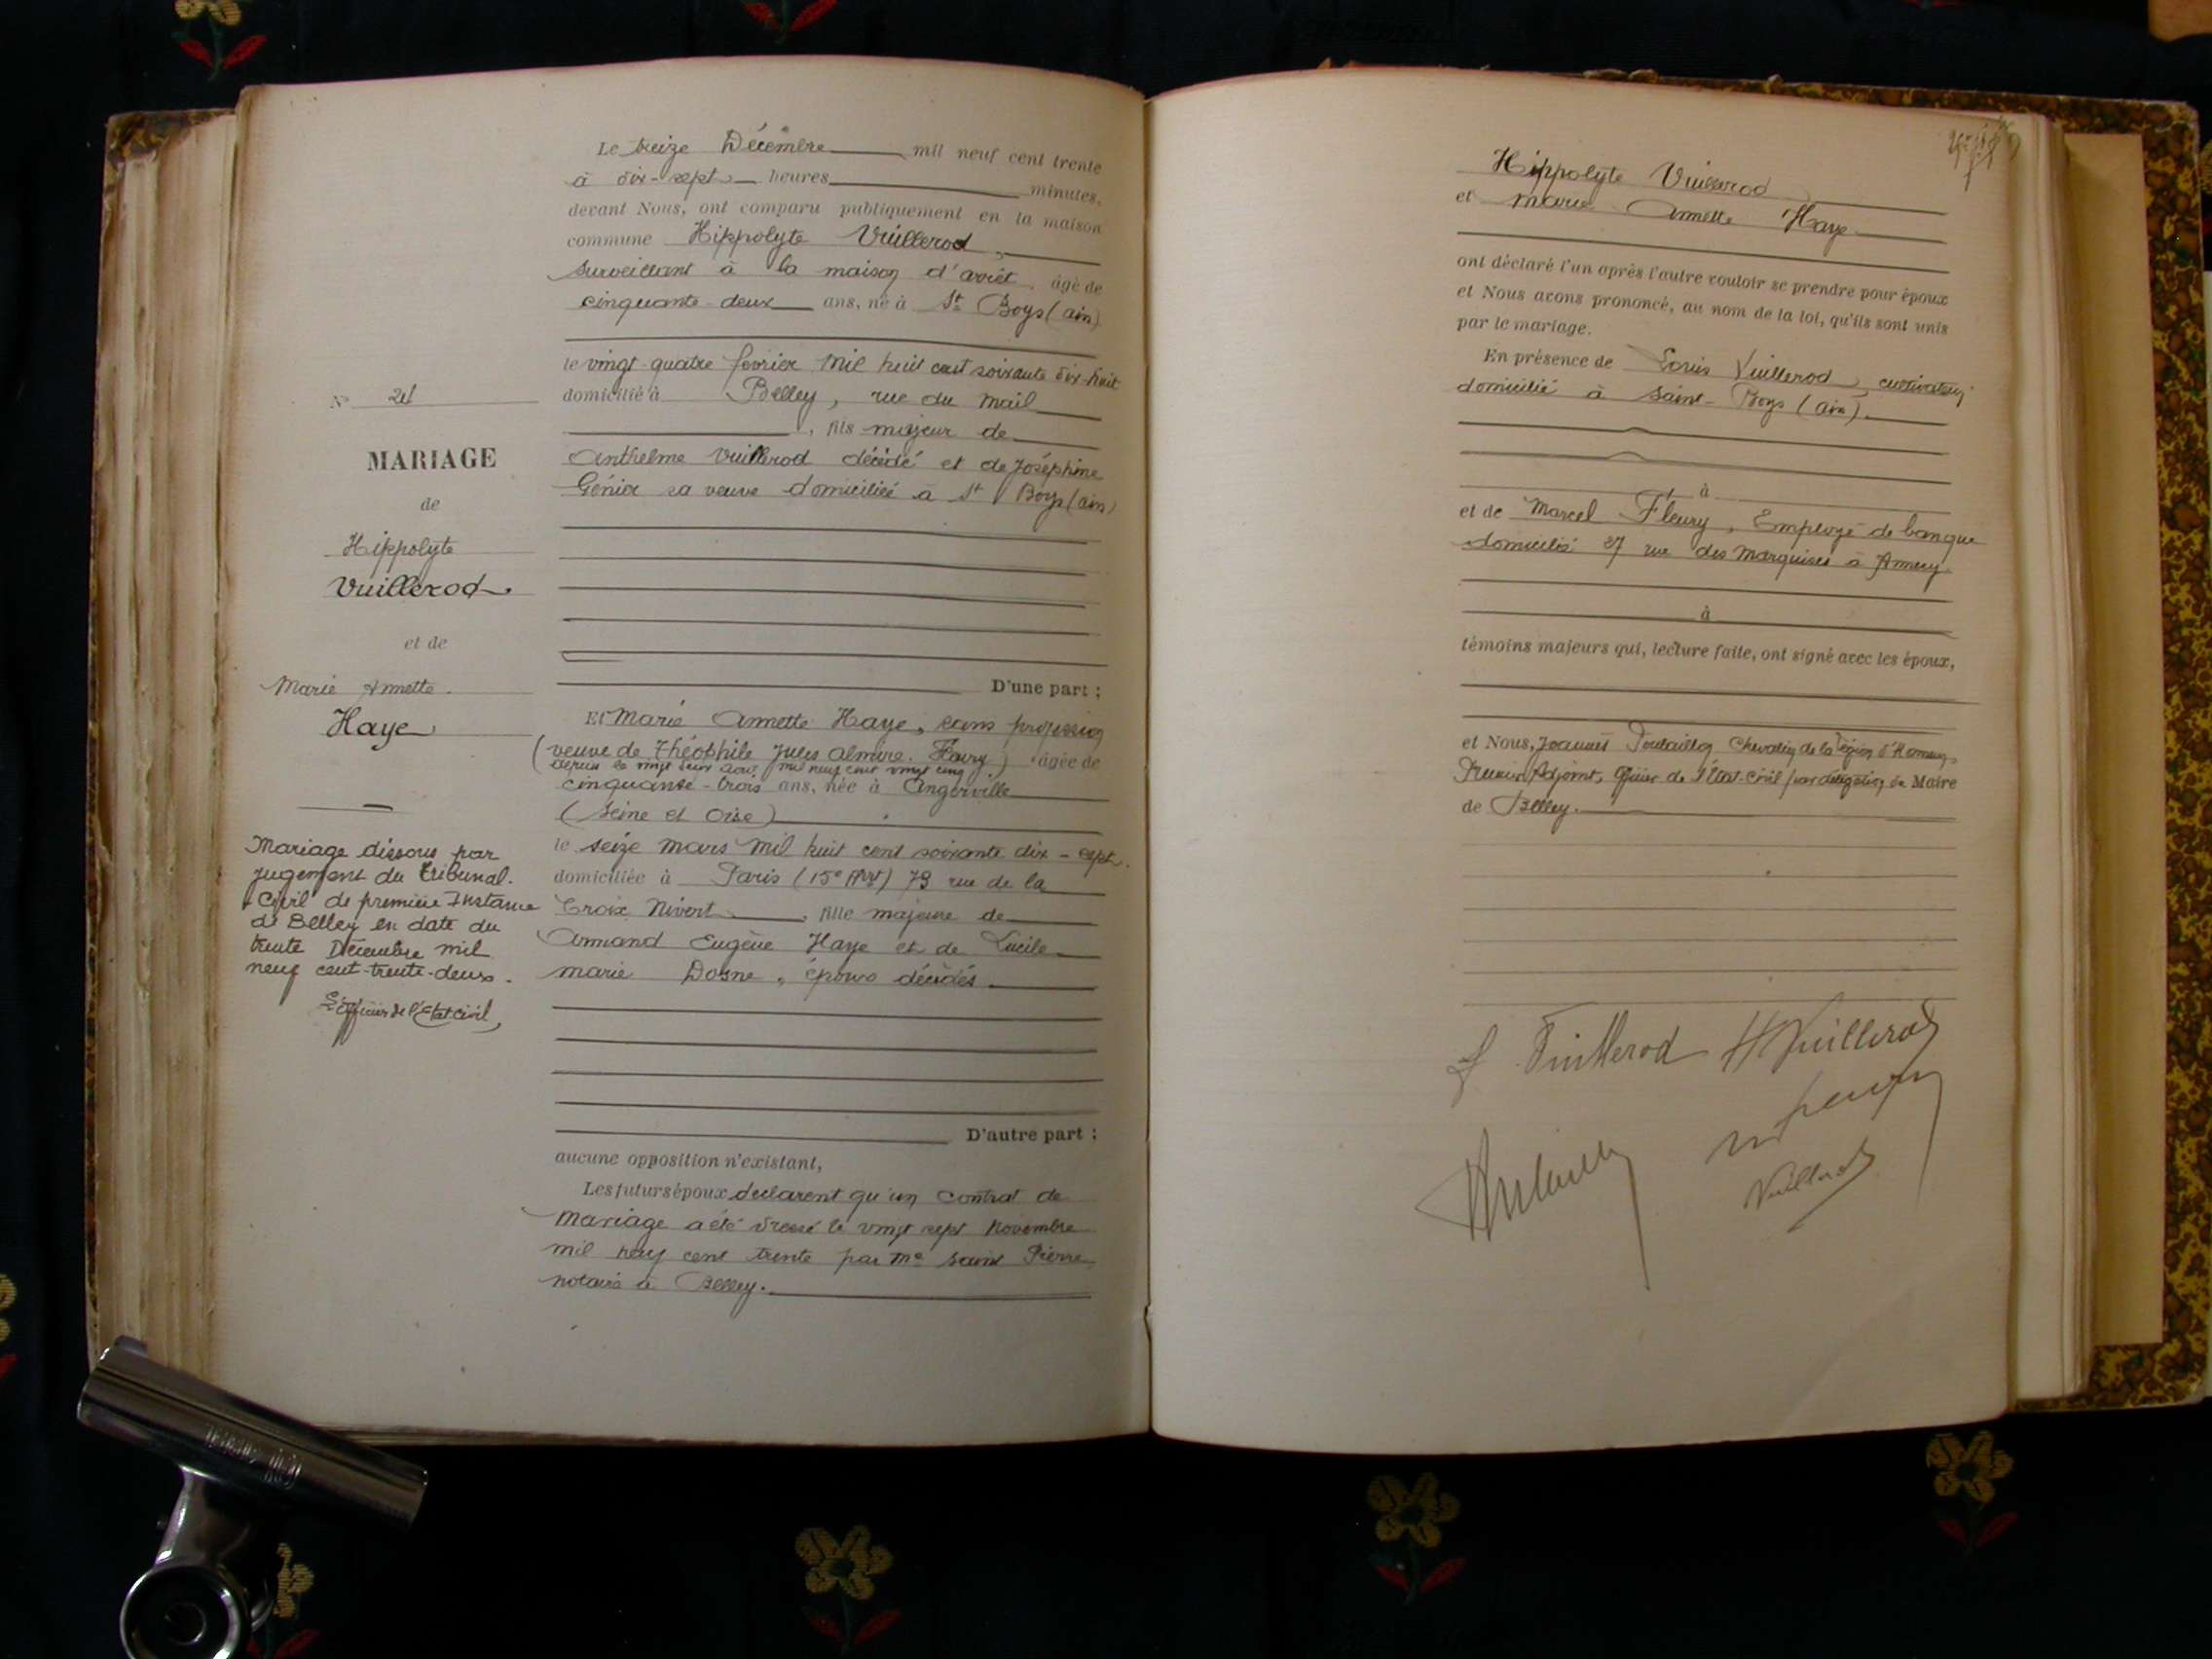 N° 21
MARIAGE
de
Hippolyte
Vuillerod
et de
Marie Annette
Haye
Mariage dissous par
jugement du Tribunal
Civil de première Instance
de Belley en date du
trente Décembre mil
neuf cent-trente-deux.
L'Officier de l'Etat civil,
Le treize Décembre mil neuf cent trente
à dix-sept heures minutes,
devant Nous, ont comparu publiquement en la maison
commune Hippolyte Vuillerod,
surveillant à la maison d'arrêt, âgé de
cinquante-deux ans, né à St Boys (ain)
le vingt-quatre fevrier mil huit cent soixante dix-huit
domicilié à Belley, rue du Mail
, fils majeur de
Anthelme Vuillerod décédé et de Joséphine
Génier sa veuve domiciliée à St Boys (ain)
D'une part ;
Et Marie Annette Haye, sans profession
(veuve de Théophile Jules Almire Fleury) âgée de
depuis le vingt deux août mil neuf cent vingt cinq
cinquante-trois ans, née à Angerville
(Seine et Oise)
le seize mars mil huit cent soixante dix-sept.
domiciliée à Paris (15e Arrt) 79 rue de la
Croix Nivert, fille majeure de
Armand Eugène Haye et de Lucile
marie Dosne, époux décédés.
D'autre part ;
aucune opposition n'existant,
Les futurs époux declarent qu'un contrat de
mariage a été dressé le vingt sept Novembre
mil neuf cent trente par Me Saint Pierre
notaire à Belley.
Hippolyte Vuillerod
et Marie Annette Haye
ont déclaré l'un après l'autre vouloir se prendre pour époux
et Nous avons prononcé, au nom de la loi, qu'ils sont unis
par le mariage.
En présence de Louis Vuillerod, cultivateur
domicilié à Saint-Boys (ain).
à
et de Marcel Fleury, Employé de banque
domicilié 27 rue des Marquises à Annecy
à
témoins majeurs qui, lecture faite, ont signé avec les époux,
et Nous, Joannès Poulaillon Chevalier de la Légion d'Honneur,
Premier Adjoint, officier de l'Etat-Civil par délégation du Maire
de Belley.
Vuillerod H Vuillerod
Vuillerod